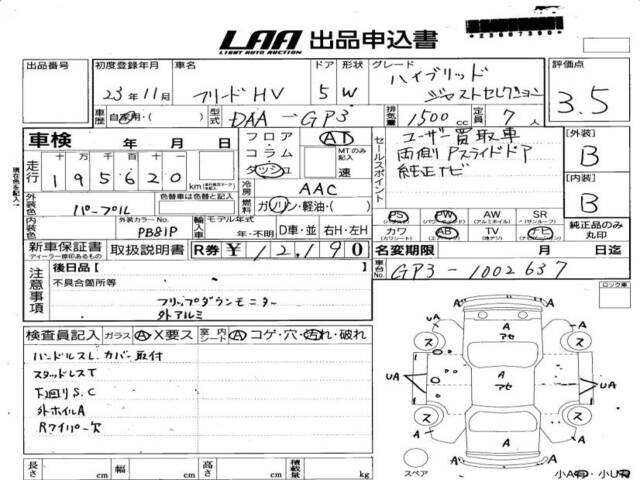 LAA 出品申込書
LIGHT AUTO AUCTION
出品番号 初度登録年月 車名 ドア 形状 グレード 評価点
23年11月 フリードHV 5 W ハイブリッド ジャストセレクション 3.5
車歴 自家用・( ) 型式 DAA-GP3 排気量 1500cc 定員 7人
車検 年 月 日
フロア・コラム・ダッシュ AT MTのみ記入 速
セールスポイント
ユーザー買取車
両側Pスライドドア
純正ナビ
[外装] B
[内装] B
走行 十 万 千 百 十 一
195620 km
冷房 AAC
燃料 ガソリン・軽油・( )
現在色を記入
外装色 パープル 色替車は色替と記入
外装カラーNo. PB81P
輸入車 モデル年式 年・不明 D車・並 右H・左H
PS PW AW SR
カワ AB TV ナビ
(パワーウインド) (アルミホイル) (サンルーフ)
(カワシート) (エアバッグ) (ナビ)
純正品のみ丸印
新車保証書 取扱説明書 R券 ¥12,190
ディーラー捺印あるもの
名変期限 月 日迄
車台No. GP3-1002637
注意事項 後日品[ ]
不具合箇所等
フリップダウンモニター
外アルミ
ロック車
検査員記入 ガラス A・X要ス 室内シート A コゲ・穴・汚れ・破れ
ハンドルスレ カバー取付
スタッドレスT
下回りS.C
外ホイルA
Rワイパー欠
UA A A
A アセ
ス ス
UA A アセ UA
ス ス
A A A
スペア 小A有・小U有
長さ cm 幅 cm 高さ cm 積載量 kg